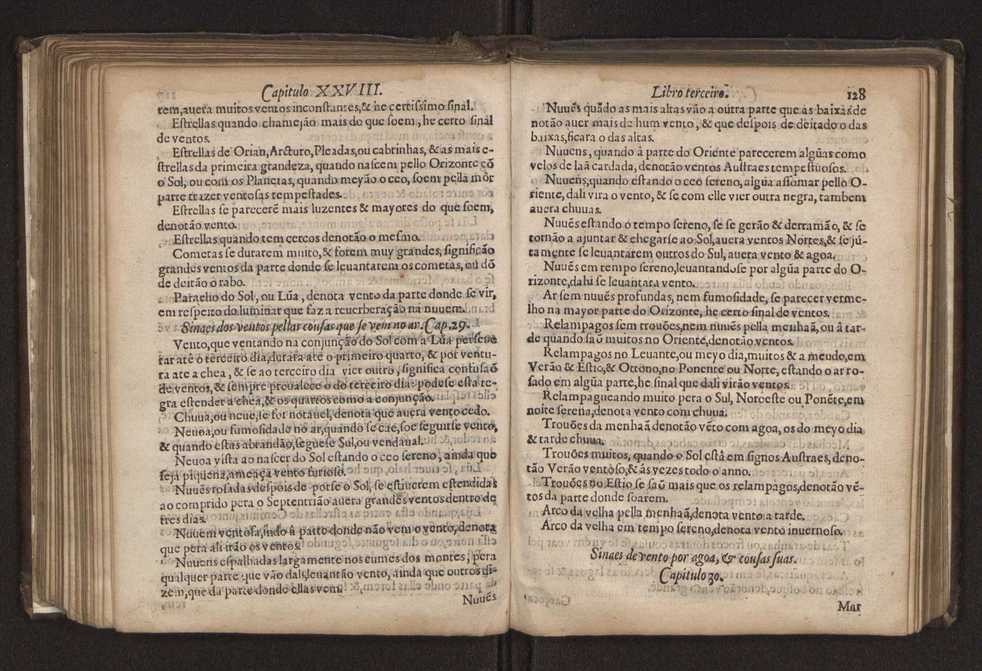 Capitulo XXVIII.
tem, auera muitos ventos inconstantes, & he certissimo sinal.
Estrellas quando chamejão mais do que soem, he certo sinal
de ventos.
Estrellas de Orian, Arcturo, Pleadas, ou cabrinhas, & as mais e-
strellas da primeira grandeza, quando nascem pello Orizonte cõ
o Sol, ou com os Planetas, quando meyão o ceo, soem pella mór
parte trazer ventosas tempestades.
Estrellas se parecerẽ mais luzentes & mayores do que soem,
denotão vento.
Estrellas quando tem cercos denotão o mesmo.
Cometas se duratem muito, & forem muy grandes, significão
grandes ventos da parte donde se leuantarem os cometas, ou dõ
de deitão o rabo.
Parselio do Sol, ou Lũa, denota vento da parte donde se vir,
em respeito do luminar que faz a reuerberação na nuuem.
Sinaes dos ventos pellas cousas que se vem no ar. Cap. 29.
Vento, que ventando na conjunção do Sol com a Lũa perseue
rar atè o terceiro dia, durarà atè o primeiro quarto, & por ventu-
ra atè a chea, & se ao terceiro dia vier outro, significa confusaõ
de ventos, & sempre preualece o do terceiro dia: podese esta re-
gra estender a chea, & os quartos como a conjunção.
Chuua, ou neue, se for notauel, denota que auera vento cedo.
Neuoa, ou fumosidade no ar, quando se cae, soe seguirse vento,
& quando estas abrandão, seguese Sul, ou vendaual.
Neuoa vista ao nascer do Sol estando o ceo sereno, ainda que
seja piquena, ameaça vento furioso.
Nuuẽs rosadas despois de posto o Sol, se estiuerem estendidas
ao comprido pera o Septentrião auera grandes ventos dentro de
tres dias.
Nuuem ventosa, indo à parte donde não vem o vento, denota
que pera ali irão os ventos.
Nuuens espalhadas largamente nos cumes dos montes, pera
qualquer parte que vão dali, leuantão vento, ainda que outros di-
zem, que da parte donde ellas vem.
Nuuẽs
Libro terceiro.
128
Nuuẽs quãdo as mais altas vão a outra parte que as baixas de
notão auer mais de hum vento, & que despois de deitado o das
baixas, ficara o das altas.
Nuuens, quando à parte do Oriente parecerem algũas como
velos de laã cardada, denotão ventos Austraes tempestuosos.
Nuuens, quando estando o ceo sereno, algũa assomar pello O-
riente, dali vira o vento, & se com elle vier outra negra, tambem
auera chuuas.
Nuuẽs estando o tempo sereno, se se gerão & derramão, & se
tornão a ajuntar & chegarse ao Sol, auera ventos Nortes, & se jũ-
tamente se leuantarem outros do Sul, auera vento & agoa.
Nuuẽs em tempo sereno, leuantandose por algũa parte do O-
rizonte, dahi se leuantara vento.
Ar sem nuuẽs profundas, nem fumosidade, se parecer verme-
lho na mayor parte do Orizonte, he certo sinal de ventos.
Relampagos sem trouões, nem nuuẽs pella menhaã, ou à tar-
de quando saũ muitos no Oriente, denotão ventos.
Relampagos no Leuante, ou meyo dia, muitos & a meude, em
Verão & Estio, & Ottono, no Ponente ou Norte, estando o ar ro-
sado em algũa parte, he sinal que dali virão ventos.
Relampagueando muito pera o Sul, Noroeste ou Ponẽte, em
noite serena, denota vento com chuua.
Trouões da menhaã denotão vẽto com agoa, os do meyo dia
& tarde chuua.
Trouões muitos, quando o Sol està em signos Austraes, deno-
tão Verão ventoso, & as vezes todo o anno.
Trouões no Estio se saũ mais que os relampagos, denotão vẽ-
tos da parte donde soarem.
Arco da velha pella menhaã, denota vento a tarde.
Arco da velha em tempo sereno, denota vento inuernoso.
Sinaes de vento por agoa, & cousas suas.
Capitulo 30.
Mar